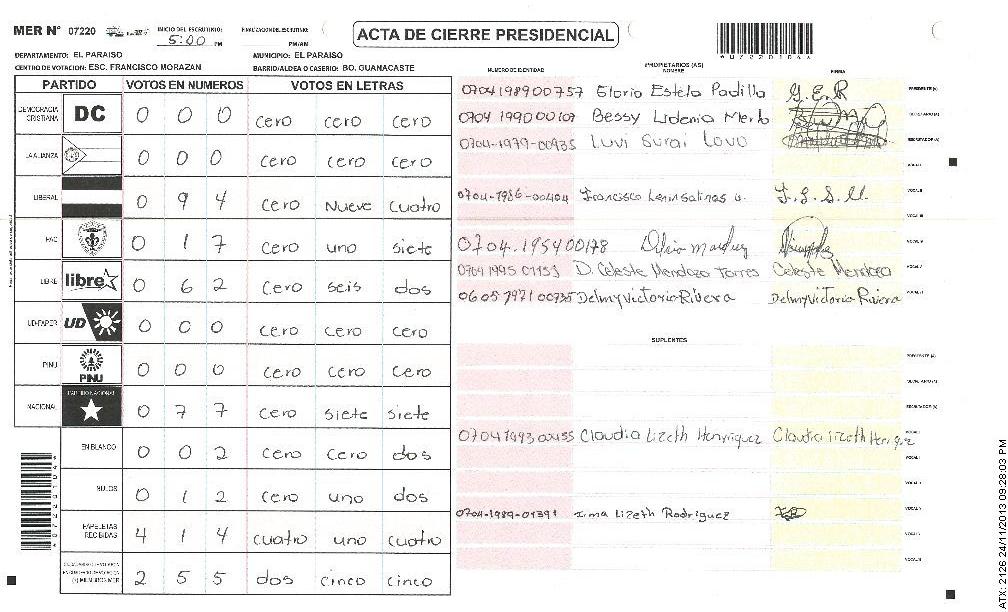 MER N° 07220 INICIO DEL ESCRUTINIO 5:00 PM FINALIZACION DEL ESCRUTINIO PM/AM
ACTA DE CIERRE PRESIDENCIAL
DEPARTAMENTO: EL PARAISO MUNICIPIO: EL PARAISO
CENTRO DE VOTACION: ESC. FRANCISCO MORAZAN BARRIO/ALDEA O CASERIO: BO. GUANACASTE
PARTIDO VOTOS EN NUMEROS VOTOS EN LETRAS
DEMOCRACIA CRISTIANA DC 0 0 0 cero cero cero
LA ALIANZA 0 0 0 cero cero cero
LIBERAL 0 9 4 cero Nueve cuatro
PAC 0 1 7 cero uno siete
LIBRE libre 0 6 2 cero seis dos
UD-FAPER UD 0 0 0 cero cero cero
PINU PINU 0 0 0 cero cero cero
NACIONAL PARTIDO NACIONAL 0 7 7 cero siete siete
EN BLANCO 0 0 2 cero cero dos
NULOS 0 1 2 cero uno dos
PAPELETAS RECIBIDAS 4 1 4 cuatro uno cuatro
(+) MIEMBROS MER 2 5 5 dos cinco cinco
PROPIETARIOS (AS)
NUMERO DE IDENTIDAD NOMBRE FIRMA
0704198900757 Glorio Estela Padilla G.E.R PRESIDENTE (A)
0704 1990 00107 Bessy Lidenia Merlo SECRETARIO (A)
0704-1979-00935 Luvi Surai Lovo ESCRUTADOR (A)
VOCAL I
0704-1986-00404 Francisco Lenin Salinas U. F.L.S.U. VOCAL II
VOCAL III
0704-1959 00178 VOCAL IV
0704 1995 01153 D. Celeste Mendozo Torres Celeste Mendozo VOCAL V
0605 1971 00735 Delmy Victoria Rivera Delmy Victoria Rivera
SUPLENTES
PRESIDENTE (A)
SECRETARIO (A)
ESCRUTADOR (A)
0704 1993 00455 Claudia Lizeth Henriquez Claudia Lizeth Henriquez VOCAL I
VOCAL II
0704-1989-01391 Irma Lizeth Rodriguez
ATX: 2126 24/11/2013 09:28:03 PM